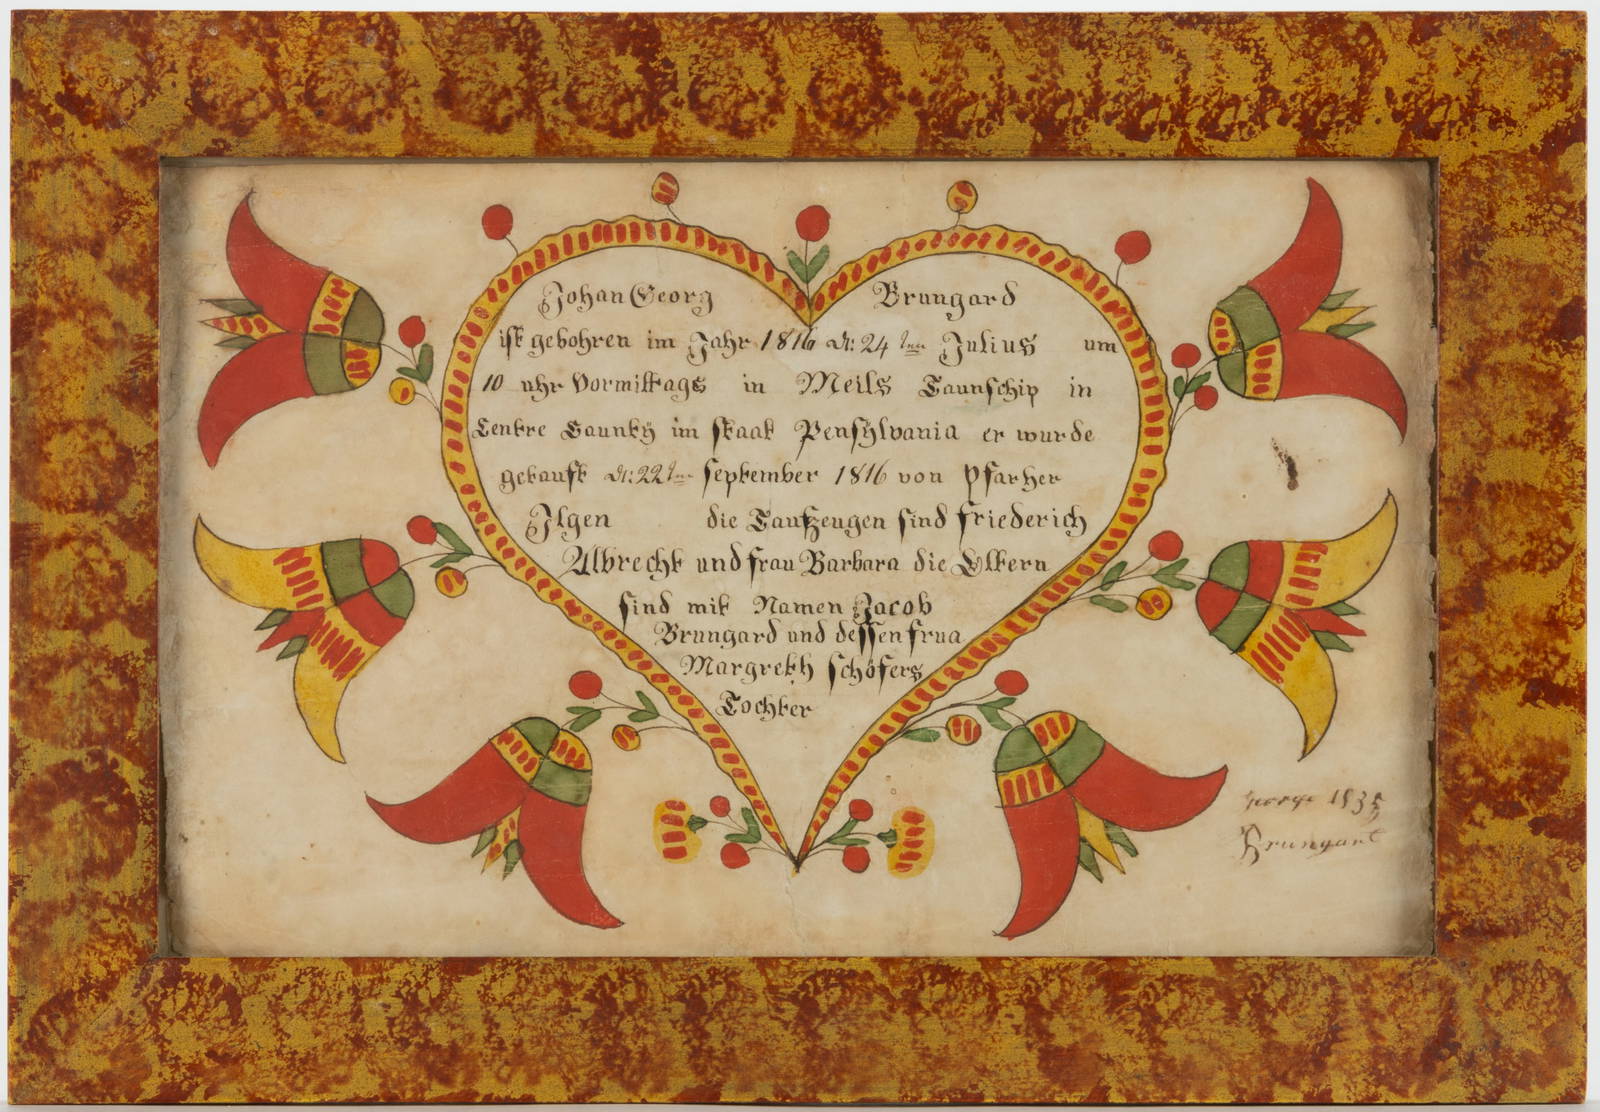 Johan Georg Brungard
ist gebohren im Jahr 1816 d: 24ten Julius um
10 uhr Vormittags in Meils Taunschip in
Centre Caunty im staat Pensylvania er wurde
getauft d: 22ten september 1816 von Pfarher
Ilgen die Taufzeugen sind friederich
Albrecht und frau Barbara die Eltern
sind mit Namen Jacob
Brungard und dessen frua
Margreth schöfers
Tochter
George 1835
Brungart